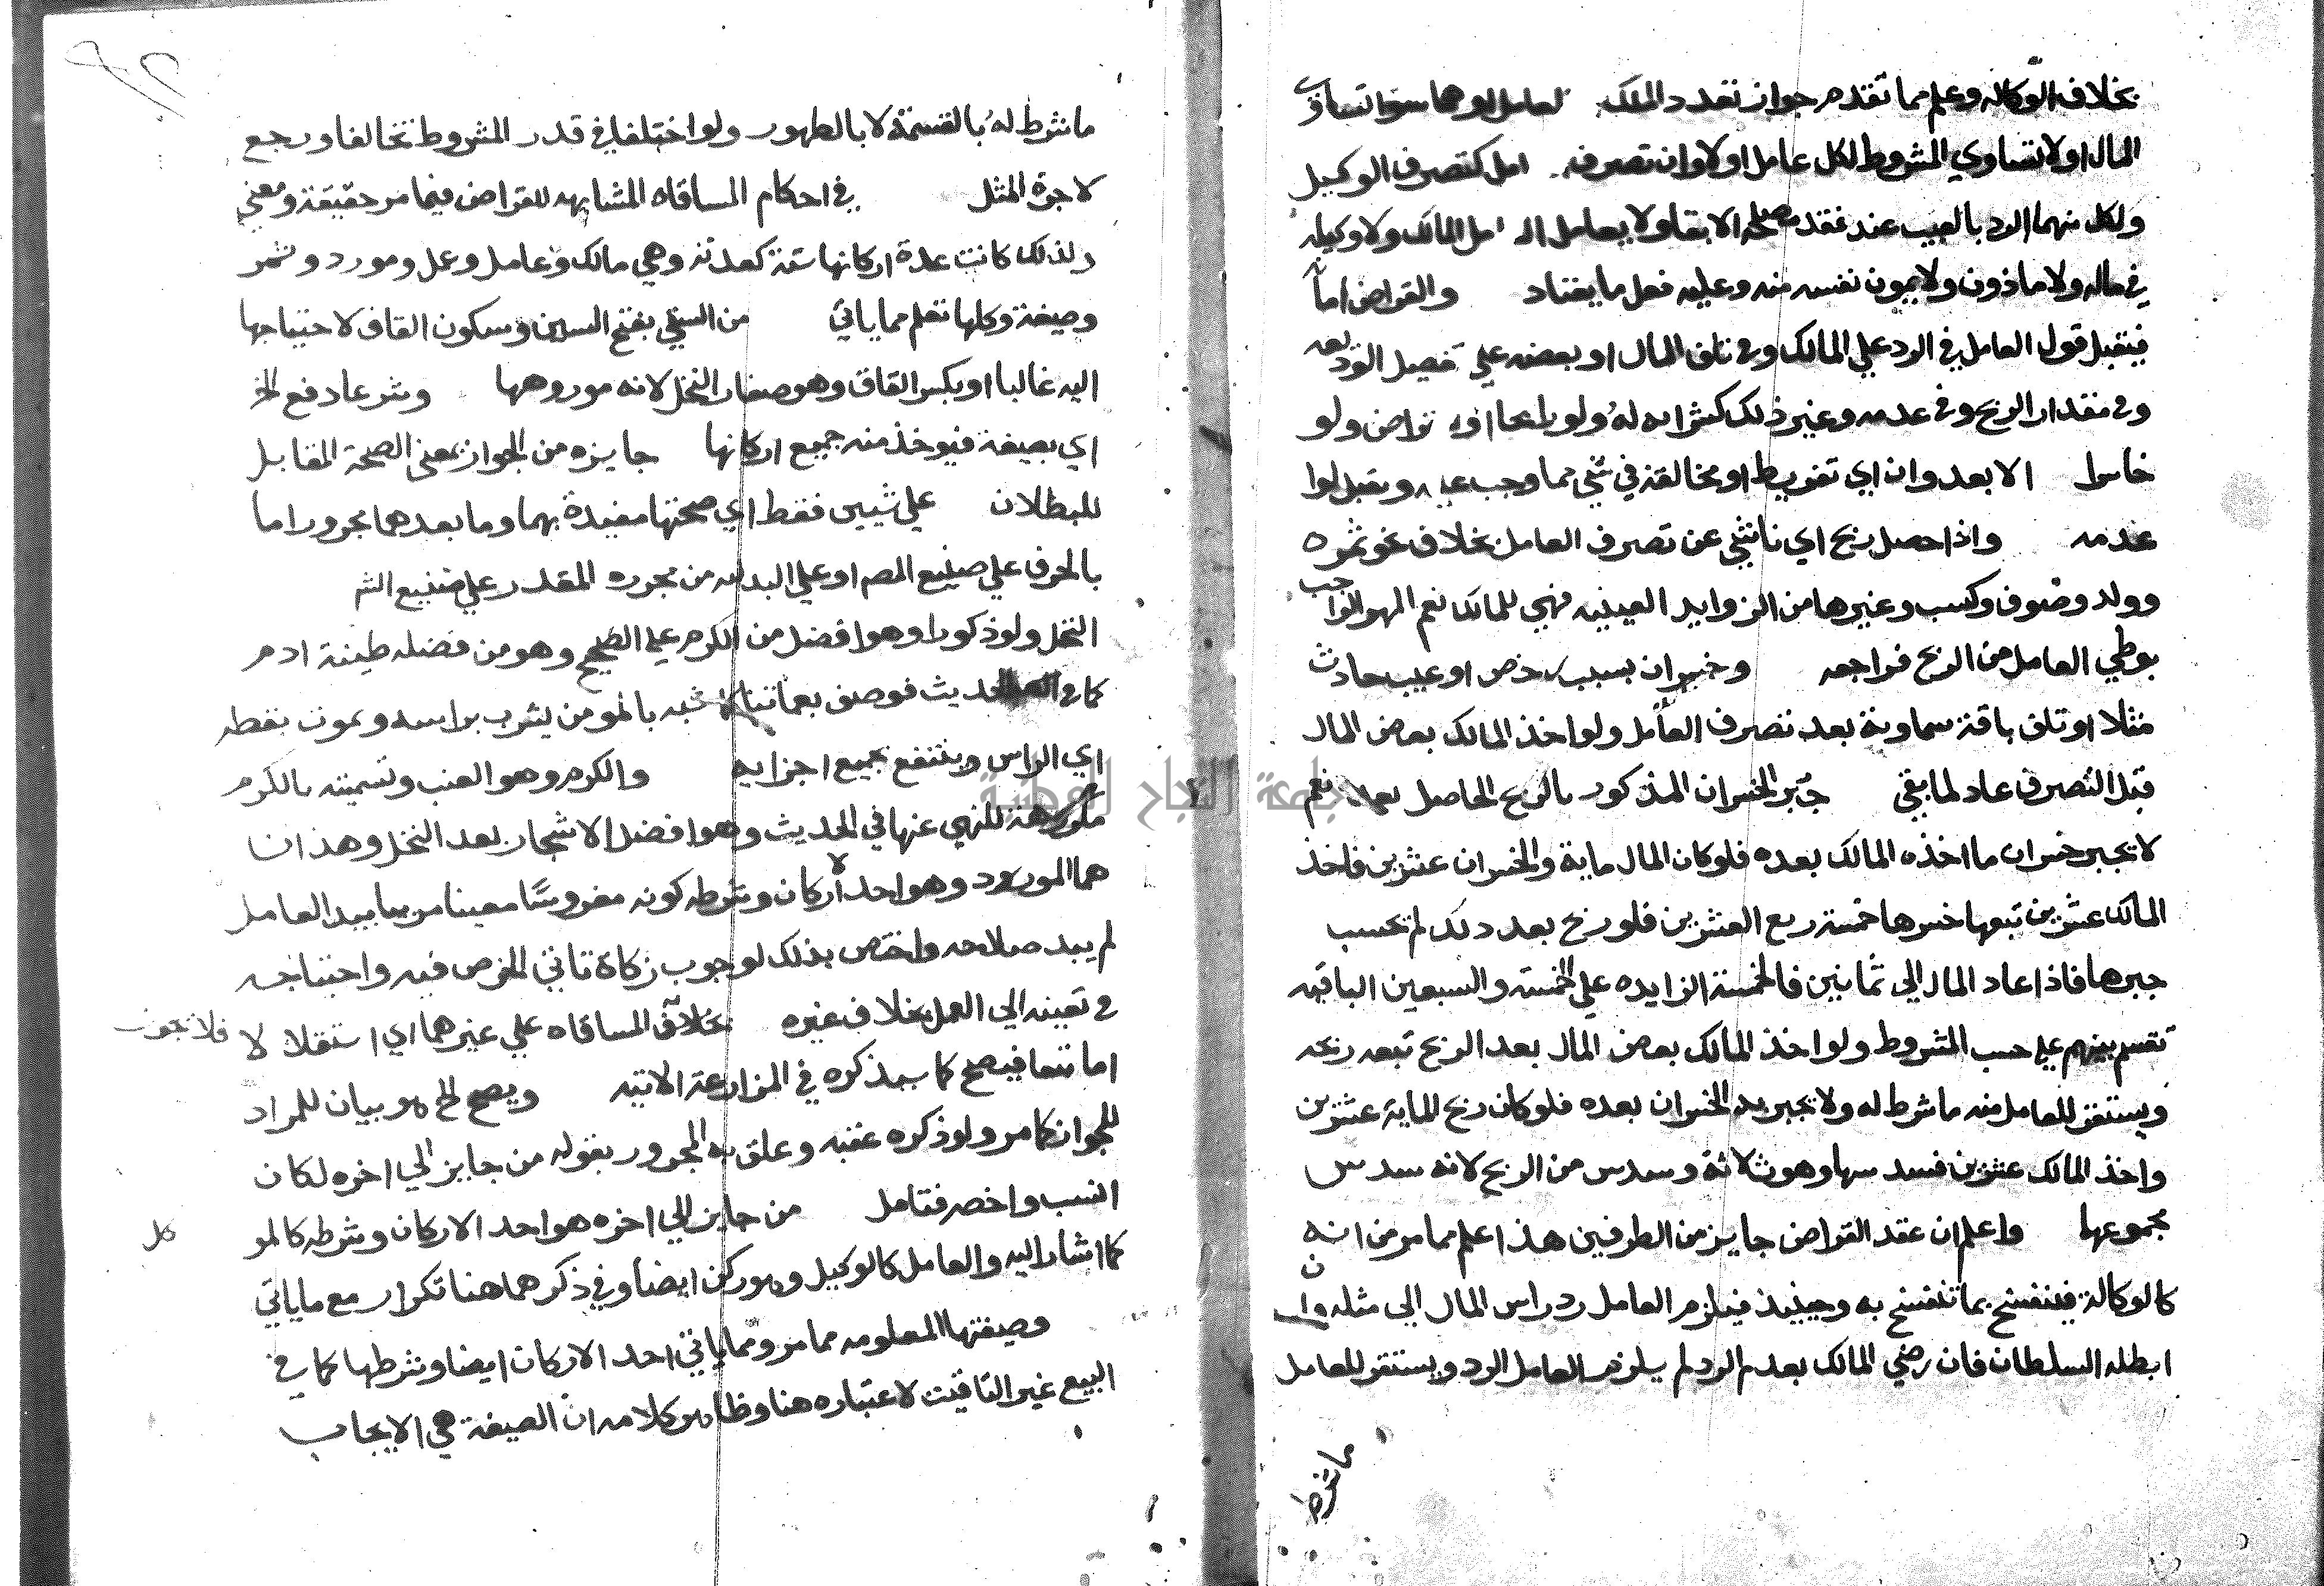 بخلاف الوكاله وعلم مما تقدم جواز تعدد المالك
المال او لا تساوي المشروط لكل عامل او لا وان تصرف كتصرف الوكيل
ولكل منهما الرد بالعيب عند فقد مصلحة الابقا ولا يعامل المالك ولا وكيله
في ماله ولا ماذون ولا يمون نفسه منه وعليه فعل ما يعتاد والقراض امانه
فيقبل قول العامل في الرد علي المالك وفي تلف المال او بعضه علي تفصيل الوديعه
وفي مقدار الربح وفي عدمه وغير ذلك كشرايه له ولو رابحا او قراض ولو
خاسرا الا بعدوان اي تفريط او مخالفة في شي مما وجب عليه ويقبل لو
عدمه واذا حصل ربح اي ناشي عن تصرف العامل بخلاف نحو ثمره
وولد وصوف وكسب وغيرها من الزوايد العينيه فهي للمالك نعم المهر الواجب
بوطي العامل من الربح فراجعه وخسران بسبب رخص او عيب حادث
مثلا او تلف بافة سماوية بعد تصرف العامل ولو اخذ المالك بعض المال
قبل التصرف عاد لما بقي جبر الخسران المذكور بالربح الحاصل بعده نعم
لا يجبر خسران ما اخذه المالك بعده فلو كان المال ماية والخسران عشرين فاخذ
المالك عشرين تبعها خسرها خمسة ربع العشرين فلو ربح بعد ذلك لم تحسب
جبرها فاذا عاد المال الي ثمانين فالخمسة الزايده علي الخمسة والسبعين الباقيه
تقسم بينهم علي حسب المشروط ولو اخذ المالك بعض المال بعد الربح تبعه ربحه
ويستقر للعامل منه ما شرط له ولا يجبر به الخسران بعده فلو كان ربح الماية عشرين
واخذ المالك عشرين فسدسها وهو ثلاثة وسدس من الربح لانه سدس
مجموعها واعلم ان عقد القراض جايز من الطرفين هذا علم مما مر من انه
كالوكالة فينفسخ بما تنفسخ به وحينيذ فيلزم العامل رد راس المال الي مثله وان
ابطله السلطان فان رضي المالك بعدم الرد لم يلزم العامل الرد ويستقر للعامل
ما شرط
ما شرط له بالقسمة لا بالظهور ولو اختلفا في قدر المشروط تحالفا ورجع
لاجرة المثل في احكام المساقاه المشابهه للقراض فيما مر حقيقة ومعني
ولذلك كانت عدة اركانها ستة كعدته وهي مالك وعامل وعمل ومورد وثمر
وصيغة وكلها تعلم مما ياتي من السقي بفتح السين وسكون القاف لاحتياجها
اليه غالبا او بكسر القاف وهو صغار النخل لانه موردها وشرعا دفع الخ
اي بصيغة فيوخذ منه جميع اركانها جايزه من الجواز بمعني الصحة المقابل
للبطلان علي شيين فقط اي صحتها مقيدة بهما وما بعدهما مجرور اما
بالحرف علي صنيع المصم او علي البدليه من مجروره المقدر علي صنيع الش
النخل ولو ذكورا وهو افضل من الكرم علي الصحيح وهو من فضله طينة ادم
كما في الحديث فوصف بعماتنا شبه بالمومن يشرب براسه ويموت بقطعه
اي الراس وينتفع بجميع اجزايه والكرم وهو العنب وتسميته بالكرم
مكروهة للنهي عنها في الحديث وهو افضل الاشجار بعد النخل وهذان
هما المورد وهو احد الاركان وشرطه كونه مغروسا معينا مرييا بيد العامل
لم يبد صلاحه واختص بذلك لوجوب زكاة تاتي الخرص فيه واحتياجه
في تعينه الي العمل بخلاف غيره بخلاف المساقاه علي غيرهما اي استقلالا فلا تجوز
اما تبعا فيصح كما سيذكره في المزارعة الاتيه ويصح الخ هو بيان للمراد
للجواز كما مر ولو ذكره عقبه وعلق به المجرور بقوله من جايز الي اخره لكان
انسب واخصر فتامل من جايز الي اخره هو احد الاركان وشرطه كالمو
كل
كما اشار اليه والعامل كالوكيل وهو ركن ايضا وفي ذكرهما هنا تكرار مع ما ياتي
وصيغتها المعلومه مما مر ومما ياتي احد الاركان ايضا وشرطها كما في
البيع غير التاقيت لاعتباره هنا وظاهر كلامه ان الصيغة هي الايجاب
جامعة النجاح الوطنية